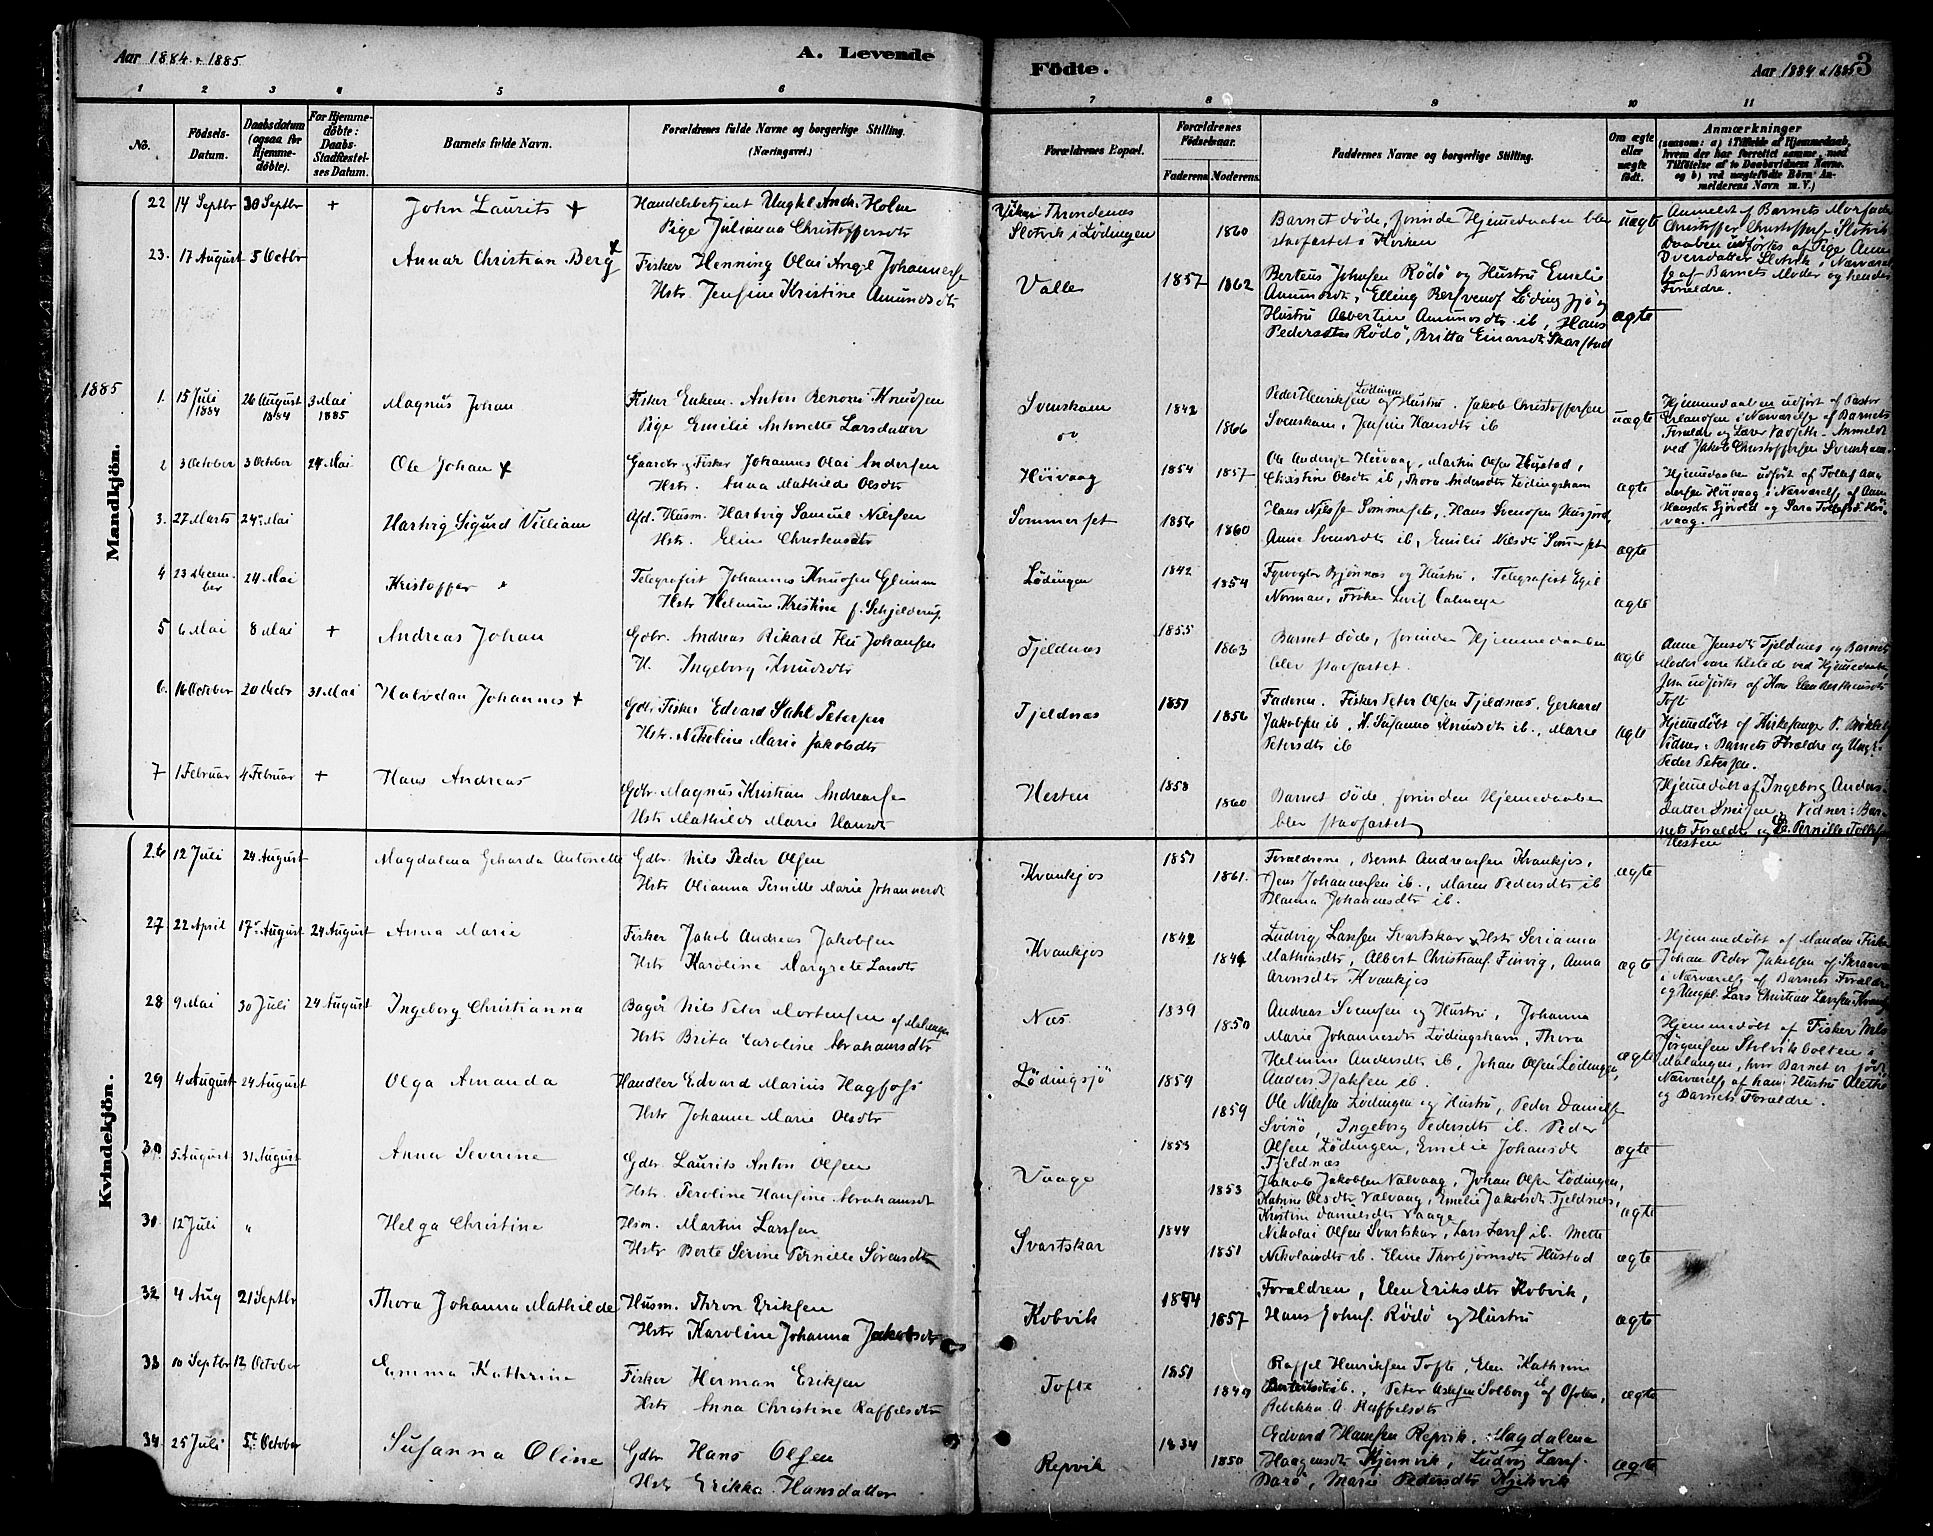 Aar 1884 & 1885
A. Levende
Födte.
Aar 1884 & 1885
3
1 2 3 4 5 6 7 8 9 10 11
No.
Födsels-Datum.
Daabsdatum (ogsaa for Hjemme-døbte).
For Hjemme-døbte: Daabs-Stadfæstel-ses Datum.
Barnets fulde Navn.
Forældrenes fulde Navne og borgerlige Stilling.
(Næringsvei.)
Forældrenes Bopæl.
Forældrenes Födselsaar.
Faderens Moderens
Faddernes Navne og borgerlige Stilling.
Om ægte eller uægte født.
Anmærkninger
(saasom: a) i Tilfælde af Hjemmedaab, hvem der har forrettet samme, med Tilføielse af to Daabsvidners Navne. og b) ved uægtefödte Börn Anmelderens Navn m. V.)
Mandkjön.
22 14 Septbr 30 Septbr + John Laurits +
Handelsbetjent Ungkl Andr. Holm
Pige Julianna Christoffersdtr
Throndenes
Slotvik i Lödingen
1860
Barnet døde, forinden Hjemmedaaben blev
stadfæstet i Kirken
uægte
Anmeldt af Barnets Morfader
Christoffer Christoffers. Slotvik
Daaben udförtes af Pige Anne
Iversdatter Slotvik i Nærværel-
se af Barnets Moder og hendes
Forældre.
23. 17 August 5 Octbr Annar Christian Berg +
Fisker Henning Olai Angel Johannesse
Hstr. Jensine Kristine Amundsdtr
Valle
1857 1862
Berteus Johnsen Rödö og Hustru Emelie
Amundsdtr, Elling Bersvends Löding sjö og
Hustru Albertine Amundsdtr ib, Hans
Pedersen Rödö, Britta Einarsdtr Skarstad
ægte
1885
1. 15 Juli 1884 26 August 1884 3 Mai 1885 Magnus Johan
Fisker Enkem. Anton Benoni Knudsen
Pige Emilie Antonette Larsdatter
Svenskam
1842 1866
Peder Henriksen Lödingen og Hustru. Jakob Christoffersen
Svenskam, Jensine Hansdtr ib
uægte
Hjemmedaaben udfört af Pastor
Erlandsen i Nærværelse af Barnets
Forældre og Lærer Vadseth. Anmeldt
ved Jakob Christoffersen Svenskam.
2 3 October 3 October 24 Mai Ole Johan +
Gaardbr og Fisker Johannes Olai Andersen
Hstr. Anna Mathilde Olsdtr
Höivaag
1854 1857
Ole Andersen Höivaag, Martin Olsen Hustad,
Christine Olsdtr ib, Thora Andersdtr Lödingsham
ægte
Hjemmedaaben udfört af Tollef An-
dersen Höivaag i Nærværelse af Anne
Hansdtr Gjövold og Sara Tollefsd. Höi-
vaag.
3. 27 Marts 24 Mai Hartvig Sigurd Villiam
Afd. Husm. Hartvig Samuel Nilsen
Hstr. Eline Christensdtr
Sommerset
1856 1860
Hans Nilsen Sommerset, Hans Svendsen Husjord
Anne Svendsdtr ib, Emilie Nilsdtr Sommerset
ægte
4 23 Decem-
ber 24 Mai Kristoffer +
Telegrafist Johannes Knudsen Gleinum
Hstr Helmine Kristine f. Schjelderup.
Lödingen
1842 1854
Fyrvogter Bjönnæs og Hustru. Telegrafist Egil
Norman, Fröken Lovise Calmeyer
ægte
5 6 Mai 8 Mai + Andreas Johan
Gdbr. Andreas Rikard Johansen
H. Ingeborg Knudsdtr
Tjeldnæs
1855 1863
Barnet døde, forinden Hjemmedaaben
blev stadfæstet.
ægte
Anne Jensdtr Tjeldnæs og Barnets
Moder vare tilstede ved Hjemmedaaben
som udförtes af Kone Elen Berthinesdtr
Toft
6. 16 October 20 Decbr 31 Mai Halvdan Johannes +
Gdbr Fisker Edvard Dahl Petersen
Hstr. Nikoline Marie Jakobsdtr
Tjeldnæs
1851 1856
Faderen. Fisker Peter Olsen Tjeldnæs, Gerhard
Jakobsen ib, H. Susanna Knudsdtr ib., Marie
Petersdtr ib
ægte
Hjemmedöbt af Kirkesanger P.
Vidner: Barnets Forældre og Ungk.
Peder Petersen.
7 1 Februar 4 Februar + Hans Andreas
Gdbr. Magnus Kristian Andreasse
Hstr Mathilde Marie Hansdtr
Hesten
1858 1860
Barnet døde, forinden Hjemmedaaben
blev stadfæstet
Hjemmedöbt af Ingeborg Anders-
datter. Vidner: Bar-
nets Forældre og Pernille Tollefs
Hesten
Kvindekjön.
26 12 Juli 24 August Magdalena Geharda Antonette
Gdbr. Nils Peder Olsen
Hstr Olianna Pernille Marie Johannesdt
Kvankjos
1851 1861.
Forældrene, Bernt Andreassen Kvankjos,
Jens Johannessen ib., Maren Pedersdtr ib
Hanna Johannesdtr ib.
ægte
27 22 April 17 August 24 August Anna Marie
Fisker Jakob Andreas Jakobsen
Hstr Karoline Margrete Larsdtr
Kvankjos
1842 1846
Ludvig Larssen Svartskar & Hstr Serianna
Mathiasdtr, Albert Christians Finvig, Anna
Arensdtr Kvankjos
ægte
Hjemmedöbt af Manden Fisker
Johan Peder Jakobsen af Skraaven
i Nærværelse af Barnets Forældre
og Ungkl. Lars Christian Larssen Kvankj
28 9 Mai 30 Juli 24 August Ingeborg Christianna
Bager Nils Peter Mortensen af Malangen
Hstr Brita Caroline Abrahamsdtr
Næs
1839 1850
Andreas Svensen og Hustru, Johanna
Marie Johannesdtr Lödingsham, Thora
Helmine Andersdtr ib, Johan Olsen Lödingen,
Anders Isaksen ib.
ægte
Hjemmedöbt af Fisker Nils
Jörgensen Stolvikbotten i
Malangen, hvor Barnet er födt.
Nærværelse af hans Hustru Olethe
og Barnets Forældre.
29 4 August 24 August Olga Amanda
Handler Edvard Marius Hagfors
Hstr Johanne Marie Olsdtr
Lödingsjö
1859 1859
Ole Nilssen Lödingen og Hustru, Peder Daniels
Svinö, Ingeborg Pedersdtr ib. Peder
Olsen Lödingen, Emilie Johansdtr
Tjeldnæs
ægte
30 5 August 31 August Anna Severine
Gdbr. Laurits Anton Olsen
Hstr. Peroline Hansine Abrahamsdt
Vaage
1853 1853
Jakob Jakobsen Valvaag, Johan Olsen Lödingen,
Katrine Olsdtr Valvaag, Emelie Jakobsdt Tjeldnes,
Kristine Danielsdtr Vaage
ægte
30. 12 Juli " Helga Christine
Hsm. Martin Larssen
Hstr Berte Serine Pernille Sörensdtr
Svartskar
1844 1851
Nikolai Olsen Svartskar, Lars Larss ib. Mette
Nikolaisdtr ib. Eline Thorbjörnsdtr Hustad
ægte
32 4 Aug 21 Septbr Thora Johanna Mathilde
Husm. Thron Eriksen
Hstr Karoline Johanna Jakobsdtr
Kobvik
1857
Forældren, Elen Eriksdtr Kobvik,
Hans Johns. Rödö og Hustru
ægte
33 10 Septbr 12 October Emma Kathrine
Fisker Herman Eriksen
Hstr Anna Christine Raffelsdtr
Tofte
1851 1849
Raffel Henriksen Tofte, Elen Kathrine
ib., Peter Solberg af Ofoten,
Rebekka A. Raffelsdtr
ægte
34. 25 Juli 5 October Susanna Oline
Gdbr Hans Olsen
Hstr Erikka Hansdatter
Repvik
1834 1850
Edvard Hanssen Repvik. Magdalena
Haagensdtr Kjernvik, Ludvig Larss.
Barö, Marie Pedersdtr Kjikvik
ægte